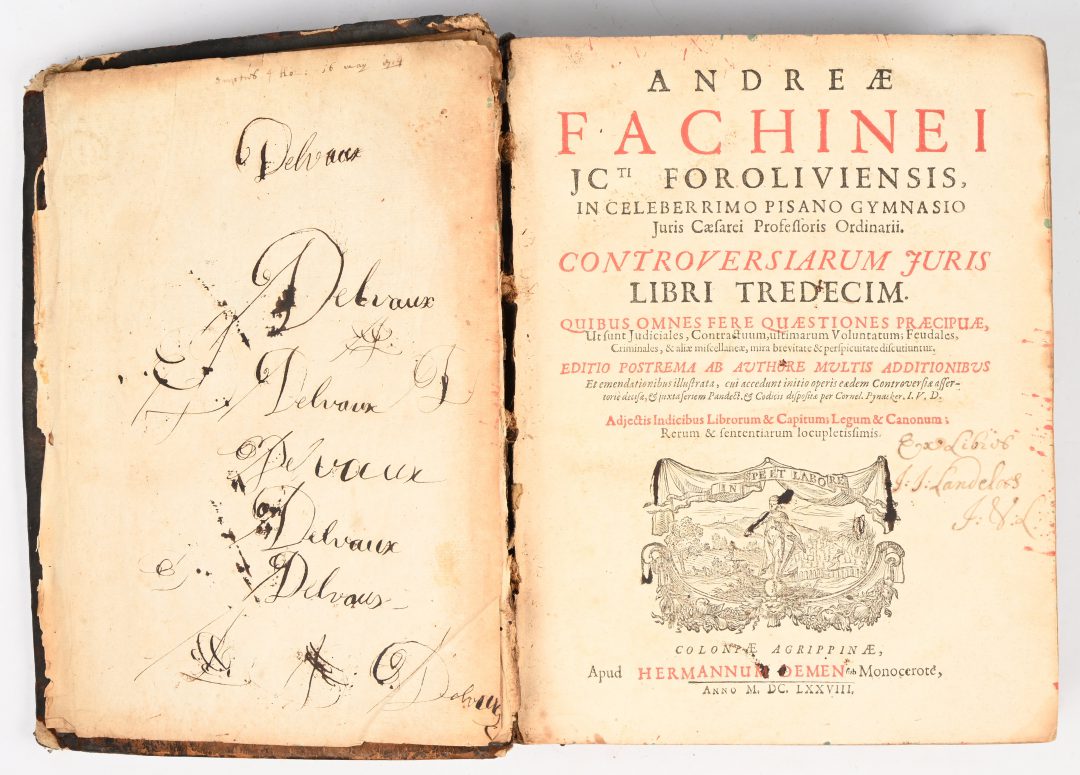 16 may
Delvaux
Delvaux
Delvaux
Delvaux
Delvaux
Delvaux
Delvaux
ANDREÆ
FACHINEI
JCTI FOROLIVIENSIS,
IN CELEBERRIMO PISANO GYMNASIO
Juris Cæsarei Professoris Ordinarii.
CONTROVERSIARUM JURIS
LIBRI TREDECIM.
QUIBUS OMNES FERE QUÆSTIONES PRÆCIPUÆ,
Ut sunt Judiciales, Contractuum, ultimarum Voluntatum; Feudales,
Criminales, & aliæ miscellaneæ, mira brevitate & perspicuitate discutiuntur.
EDITIO POSTREMA AB AUTHORE MULTIS ADDITIONIBUS
Et emendationibus illustrata, cui accedunt initio operis eædem Controversiæ asser-
toriè decisæ, & juxta seriem Pandect. & Codicis dispositæ per Cornel. Pynacker. I. V. D.
Adjectis Indicibus Librorum & Capitum; Legum & Canonum;
Rerum & sententiarum locupletissimis.
Ex Libris
J: J: Landeloos
J: V: L
IN SPE ET LABORE
COLONIÆ AGRIPPINÆ,
Apud HERMANNUM DEMEN sub Monocerote,
ANNO M. DC. LXXVIII.